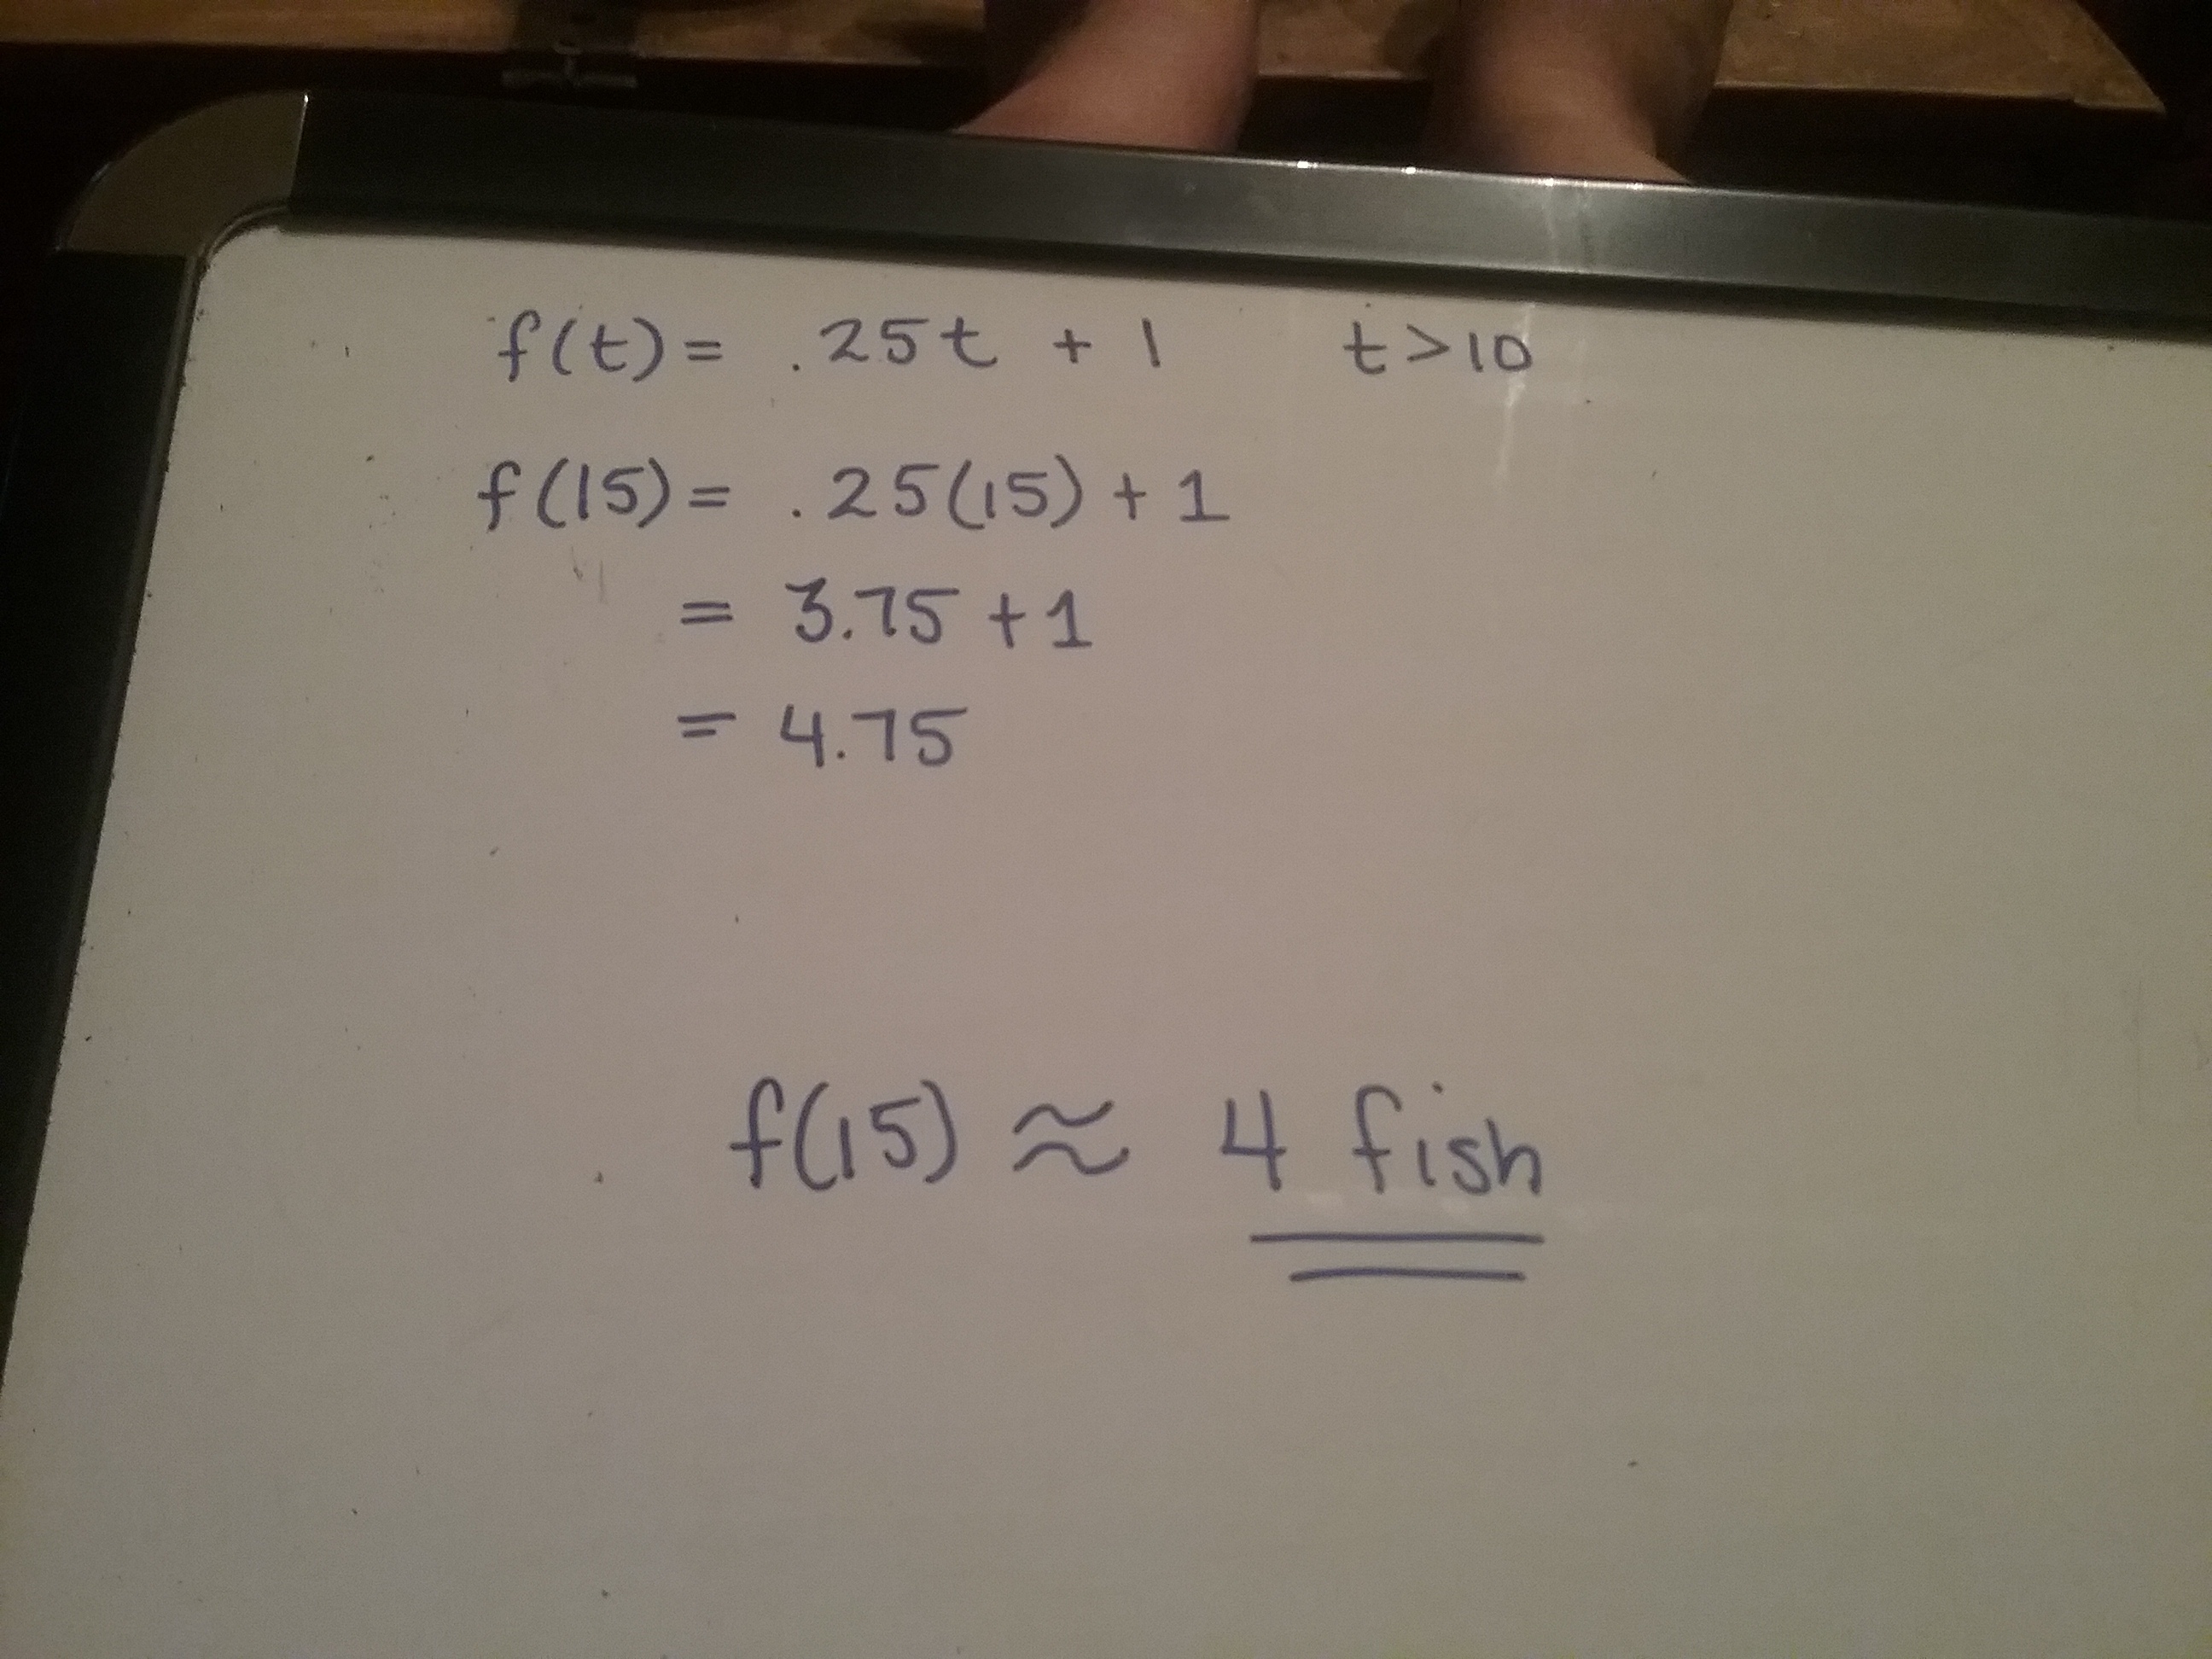 f(t) = .25t + 1 t > 10
f(15) = .25(15) + 1
= 3.75 + 1
= 4.75
f(15) ≈ 4 fish